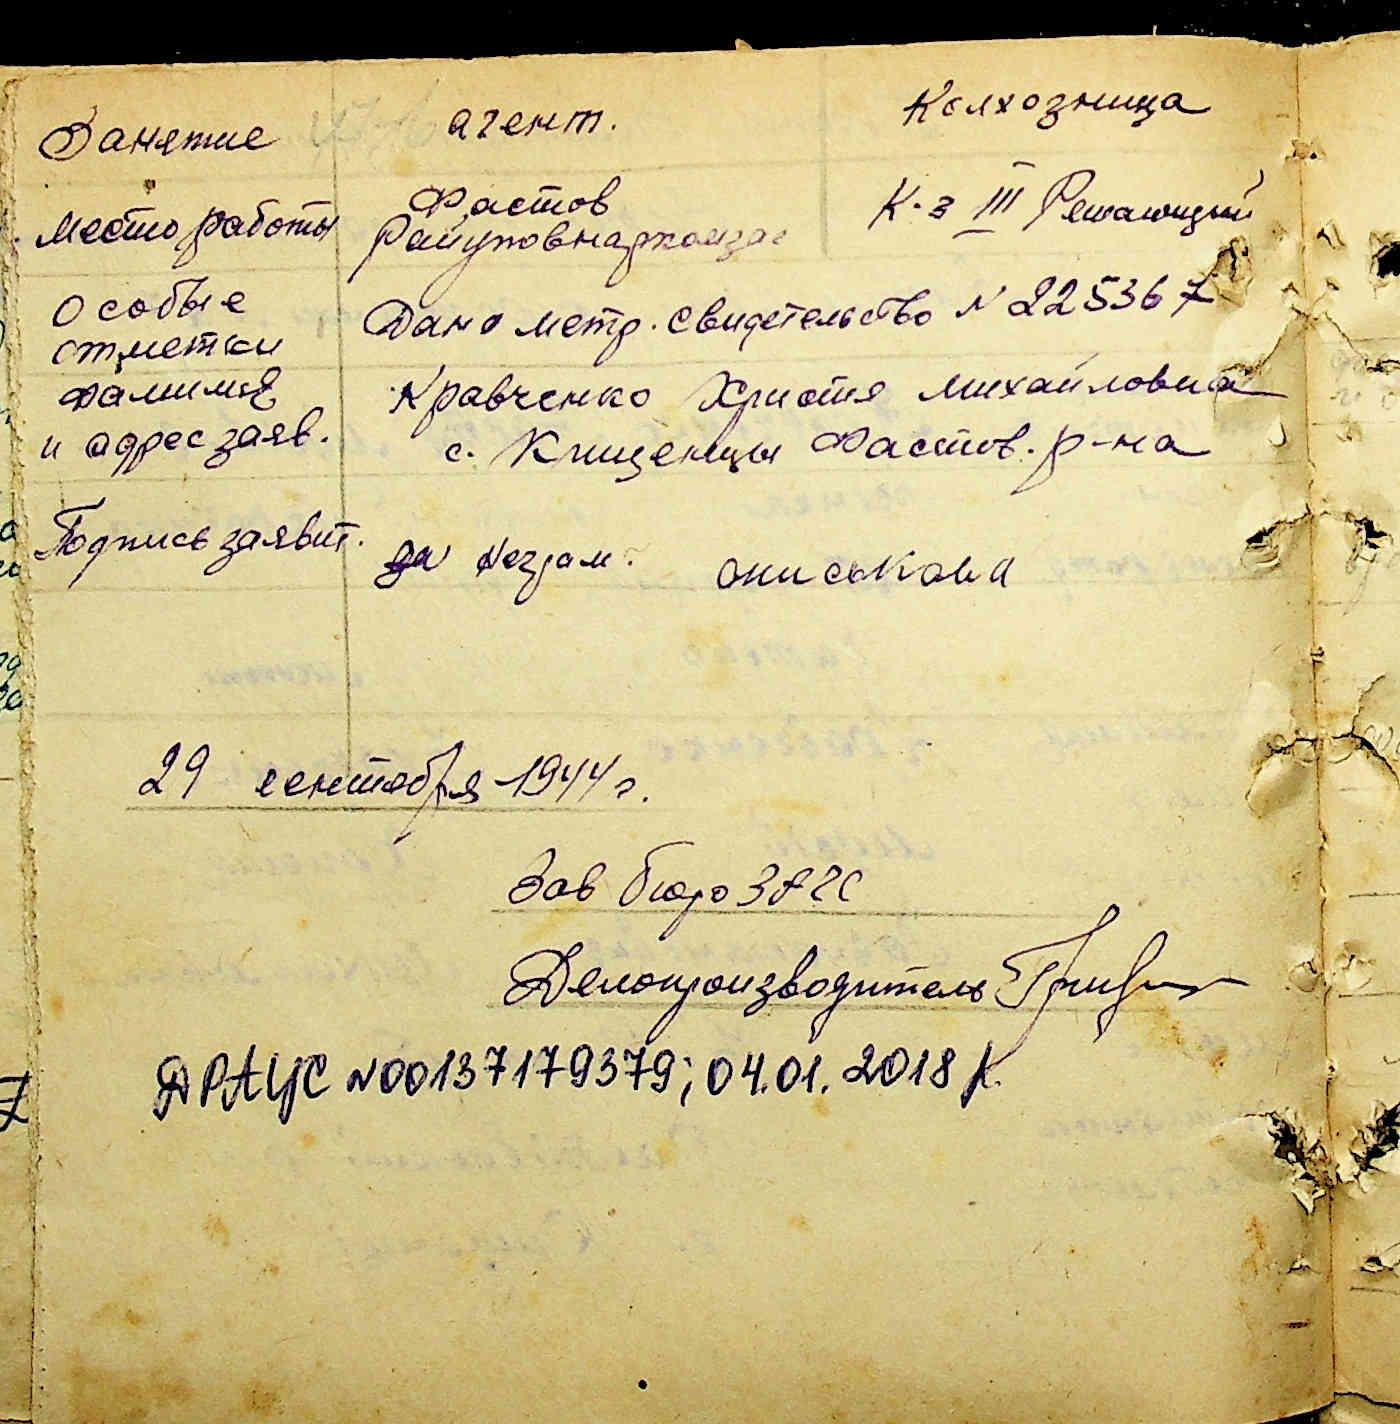 Занятие агент. Колхозница
Место работы Фастов К-з III Решающий
Райуповнаркомзаг
Особые Дано метр. свидетельство N 225367
отметки
Фамилия Кравченко Христя Михайловна
и адрес заяв. с. Клищенцы Фастов. р-на
Подпись заявит. за Онискова
29 сентября 1944 г.
Зав бюро ЗАГС
Делопроизводитель
ДРАЦС N00137179379; 04.01.2018 р.